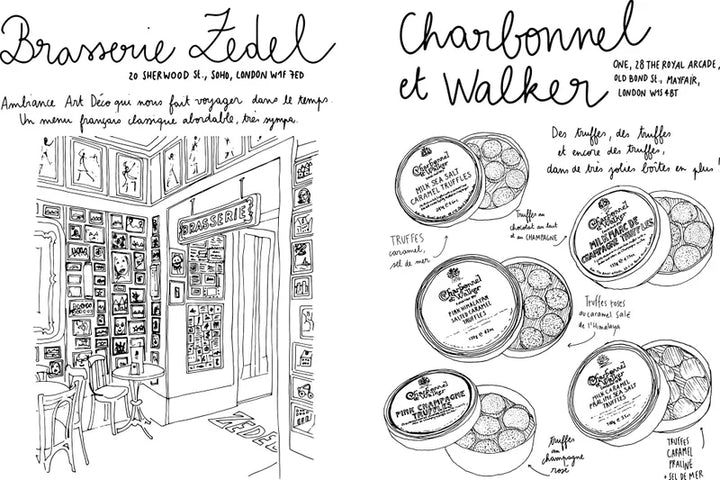 Brasserie Zedel
20 SHERWOOD St., SOHO, LONDON W1F 7ED
Ambiance Art Déco qui nous fait voyager dans le temps.
Un menu français classique abordable, très sympa.
BRASSERIE
ZEDEL
Charbonnel
et Walker
ONE, 28 THE ROYAL ARCADE,
OLD BOND St., MAYFAIR,
LONDON W1S 4BT
Des truffes, des truffes
et encore des truffes,
dans de très jolies boîtes en plus!
Charbonnel
et Walker
MILK SEA SALT
CARAMEL TRUFFLES
TRUFFES
caramel,
sel de mer
Truffes au
chocolat au lait
et au CHAMPAGNE
Charbonnel
et Walker
MILK MARC DE
CHAMPAGNE TRUFFLES
Charbonnel
et Walker
PINK HIMALAYAN
SALTED CARAMEL
TRUFFLES
Truffes roses
au caramel salé
de l'Himalaya
Charbonnel
et Walker
PINK CHAMPAGNE
TRUFFLES
truffes
au
champagne
rosé
Charbonnel
et Walker
MILK CARAMEL
PRALINE SEA SALT
TRUFFLES
TRUFFES
CARAMEL
PRALINÉ
+ SEL DE MER